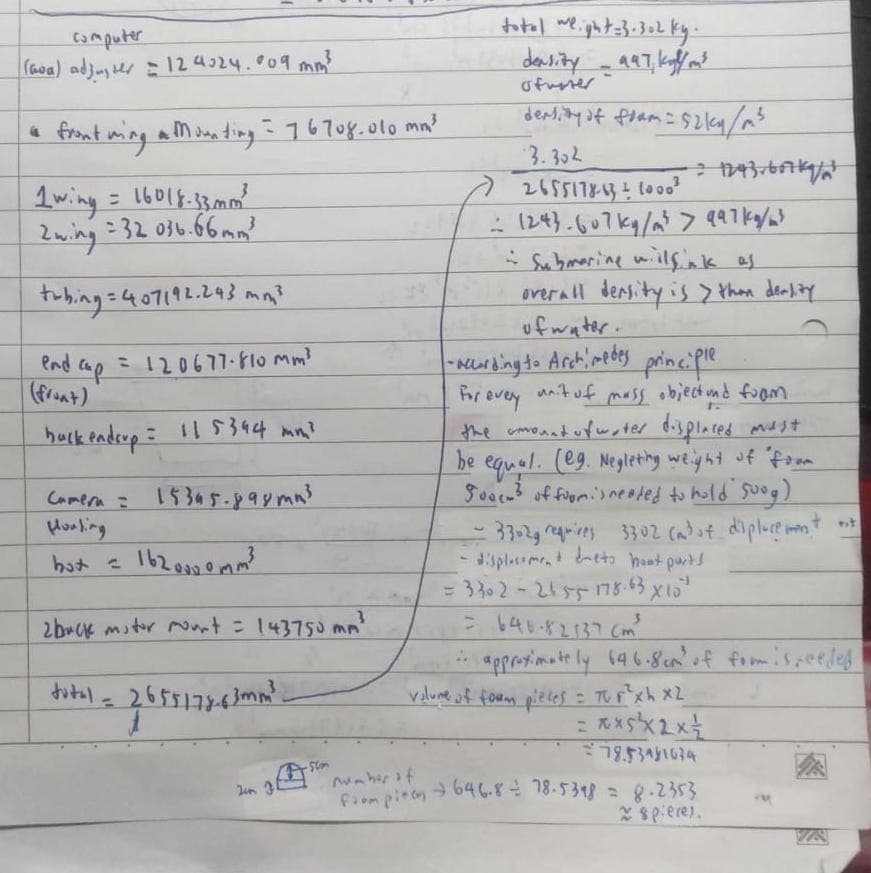 computer
(aoa) adjuster = 124024.009 mm³
front wing a Mounting = 76708.010 mm³
1 wing = 16018.33 mm³
2 wing = 32 036.66 mm³
tubing = 407192.243 mm³
end cap = 120677.810 mm³
(front)
back endcap = 115394 mm³
camera = 15395.898 mm³
Housing
box = 1620000 mm³
2 back motor mount = 143750 mm³
total = 2655178.63 mm³
total weight = 3.302 kg.
density = 997 kg/m³
of water
density of foam = 52 kg/m³
3.302
2655178.63 ÷ 1000³ = 1243.607 kg/m³
∴ 1243.607 kg/m³ > 997 kg/m³
∴ Submarine will sink as
overall density is > than density
of water.
- according to Archimedes principle
For every unit of mass object and foam
the amount of water displaced must
be equal. (eg. Negleting weight of foam
500cm³ of foam is needed to hold 500g)
- 3302g requires 3302 cm³ of displacement
- displacement due to boat parts
= 3302 - 2655178.63 × 10⁻³
= 646.82137 cm³
∴ approximately 646.8cm³ of foam is needed
volume of foam pieces = πr² × h × 2
= π × 5² × 2 × ½
= 78.53981634
5cm
2cm
number of
foam pieces → 646.8 ÷ 78.5398 = 8.2353
≈ 8 pieces.